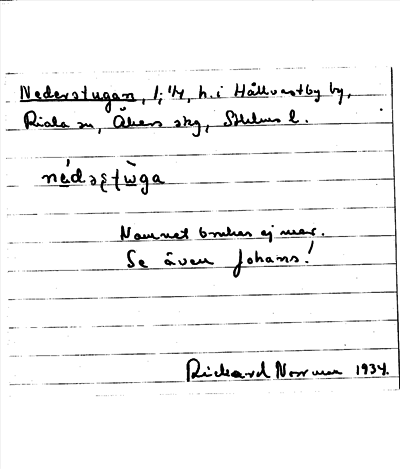 Nederstugan, 1/4, h. i Hållvastby by,
Riala sn, Åkers skg, Sthlms l.
nédəʂtùga
Namnet brukas ej mer.
Se även Johans!
Rickard Norrman 1934.